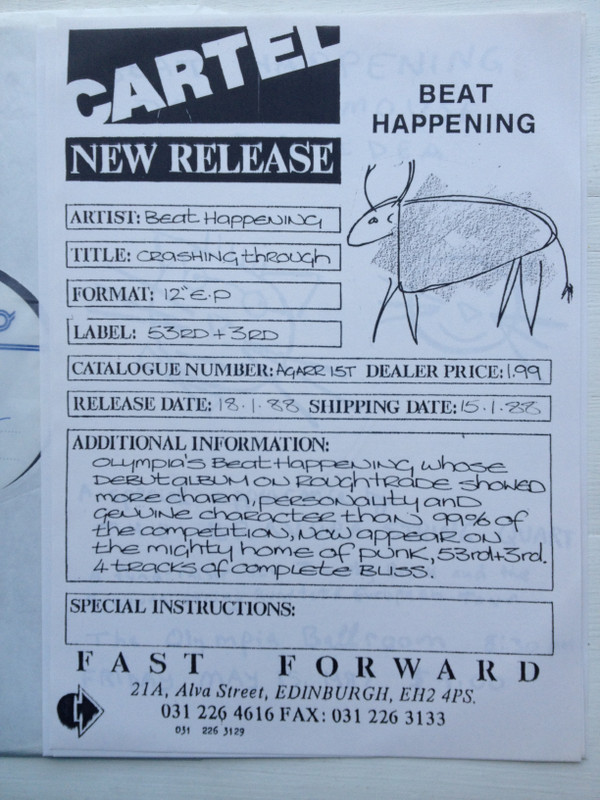 CARTEL
NEW RELEASE
BEAT
HAPPENING
ARTIST: Beat Happening
TITLE: Crashing through
FORMAT: 12" E.P
LABEL: 53RD + 3RD
CATALOGUE NUMBER: AGARR 15T DEALER PRICE: 1.99
RELEASE DATE: 18.1.88 SHIPPING DATE: 15.1.88
ADDITIONAL INFORMATION:
Olympia's Beat Happening, whose
debut album on Rough Trade showed
more charm, personality and
genuine character than 99% of
the competition, now appear on
the mighty home of punk, 53rd+3rd.
4 tracks of complete bliss.
SPECIAL INSTRUCTIONS:
FAST FORWARD
21A, Alva Street, EDINBURGH, EH2 4PS.
031 226 4616 FAX: 031 226 3133
031 226 3129